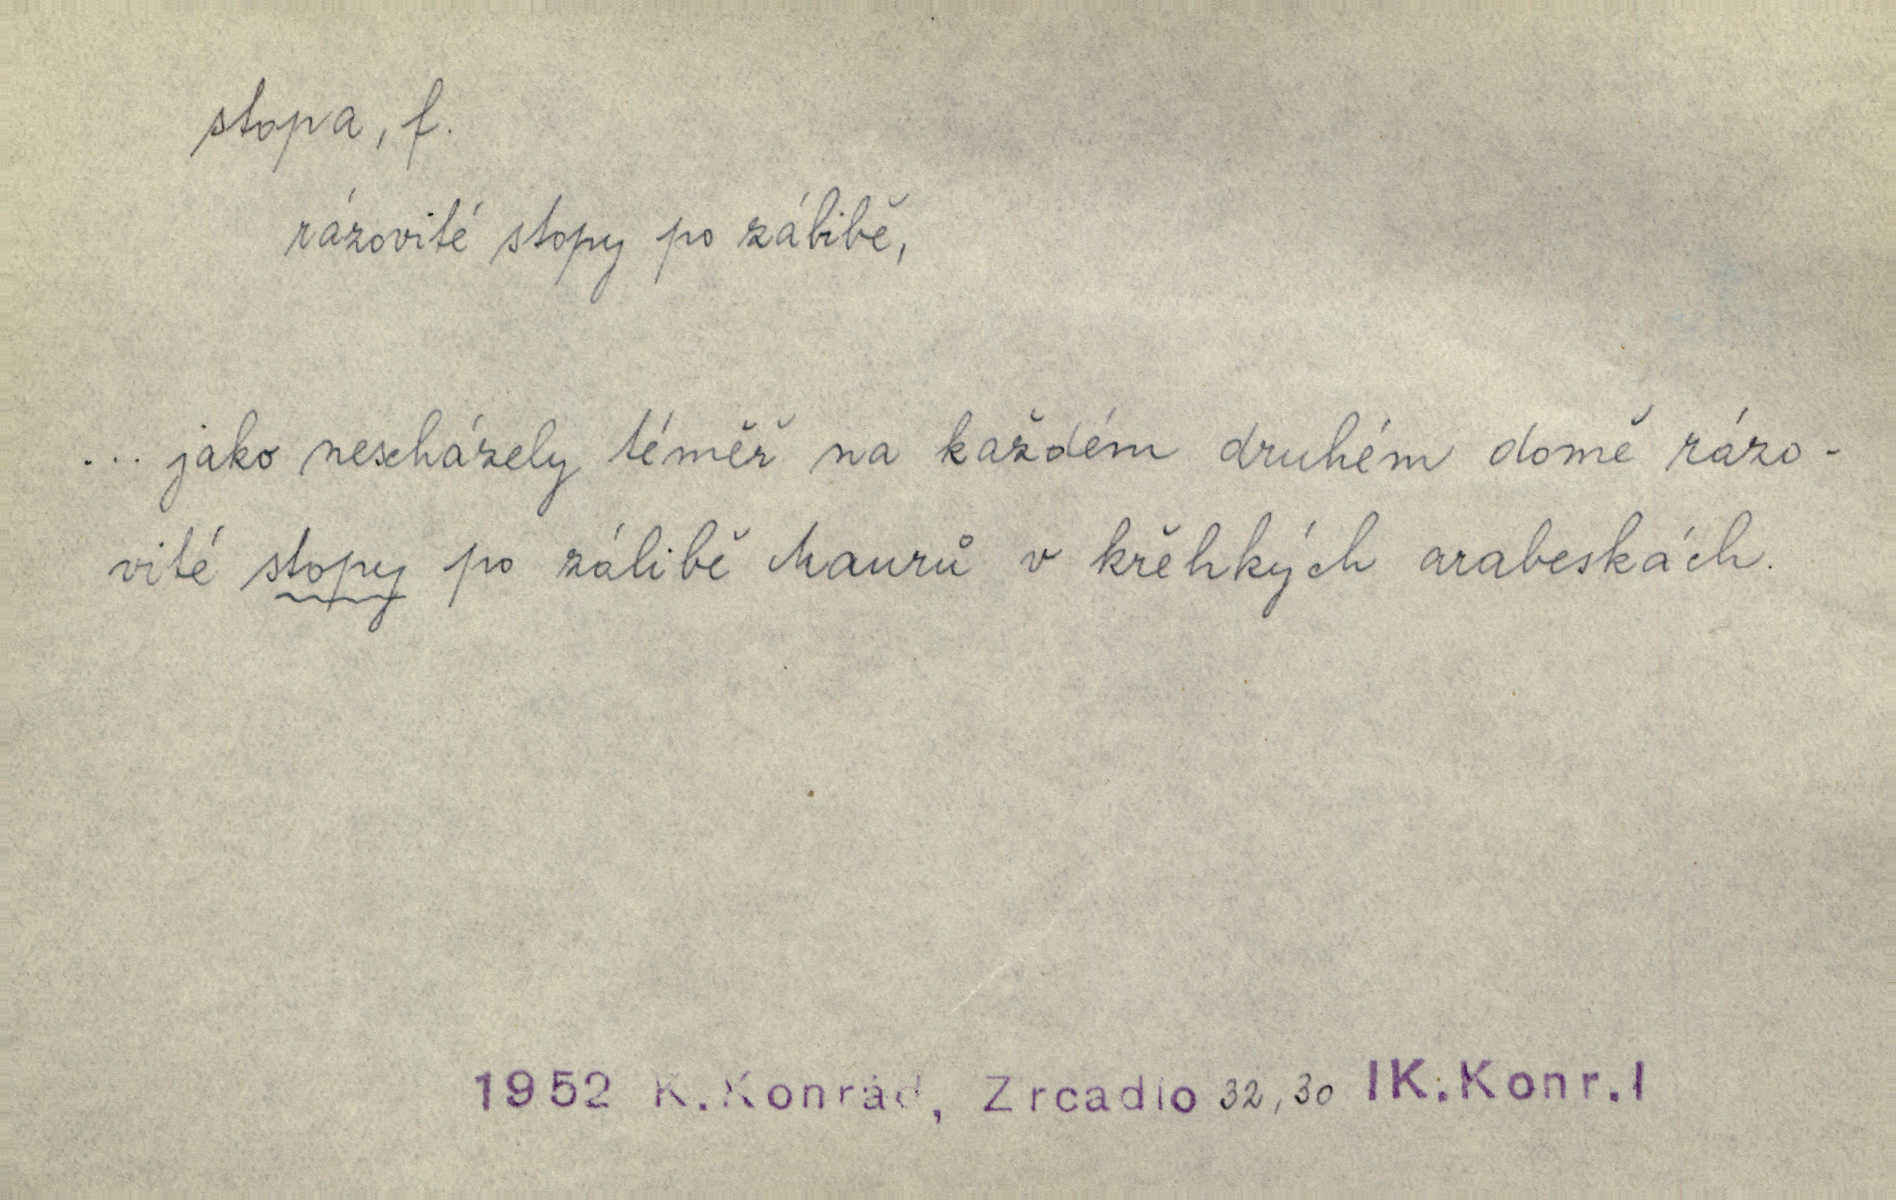 stopa, f.
rázovité stopy po zálibě,
... jako nescházely téměř na každém druhém domě rázo-
vité stopy po zálibě Maurů v křehkých arabeskách.
1952 K. Konrád, Zrcadlo 32, 30 IK.Konr.I